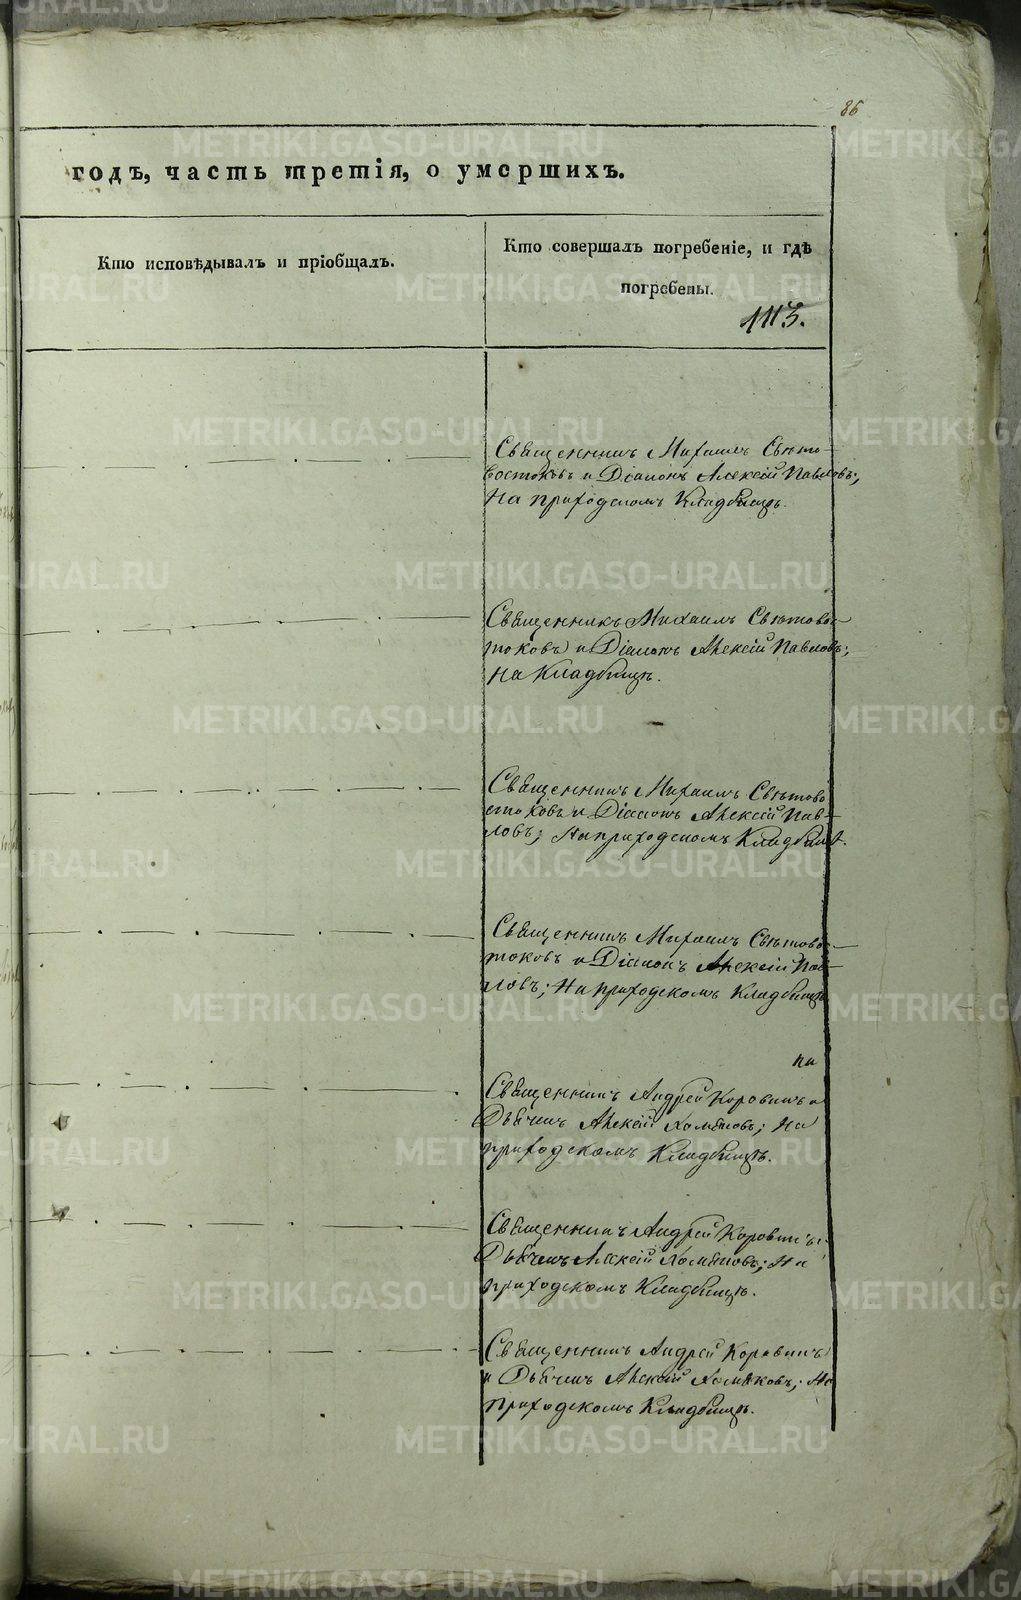 86
годъ, часть третія, о умершихъ.
Кто исповѣдывалъ и пріобщалъ.
Кто совершалъ погребеніе, и гдѣ
погребены.
1113.
Священникъ Михаилъ Свѣто-
востоковъ и Діаконъ Алексій Павловъ;
На приходскомъ Кладбищѣ.
Священникъ Михаилъ Свѣтовос-
токовъ и Діаконъ Алексій Павловъ;
На Кладбищѣ.
Священникъ Михаилъ Свѣтово
стоковъ и Діаконъ Алексій Пав-
ловъ; На приходскомъ Кладбищѣ.
Священникъ Михаилъ Свѣтовос-
токовъ и Діаконъ Алексій Пав-
ловъ; На приходскомъ Кладбищѣ
Священникъ Андрей Коровинъ и
Дьячекъ Алексій Хомяковъ; На
приходскомъ Кладбищѣ.
Священникъ Андрей Коровинъ и
Дьячекъ Алексій Хомяковъ; На
приходскомъ Кладбищѣ.
Священникъ Андрей Коровинъ
и Дьячекъ Алексій Хомяковъ; На
приходскомъ Кладбищѣ.
METRIKI.GASO-URAL.RU